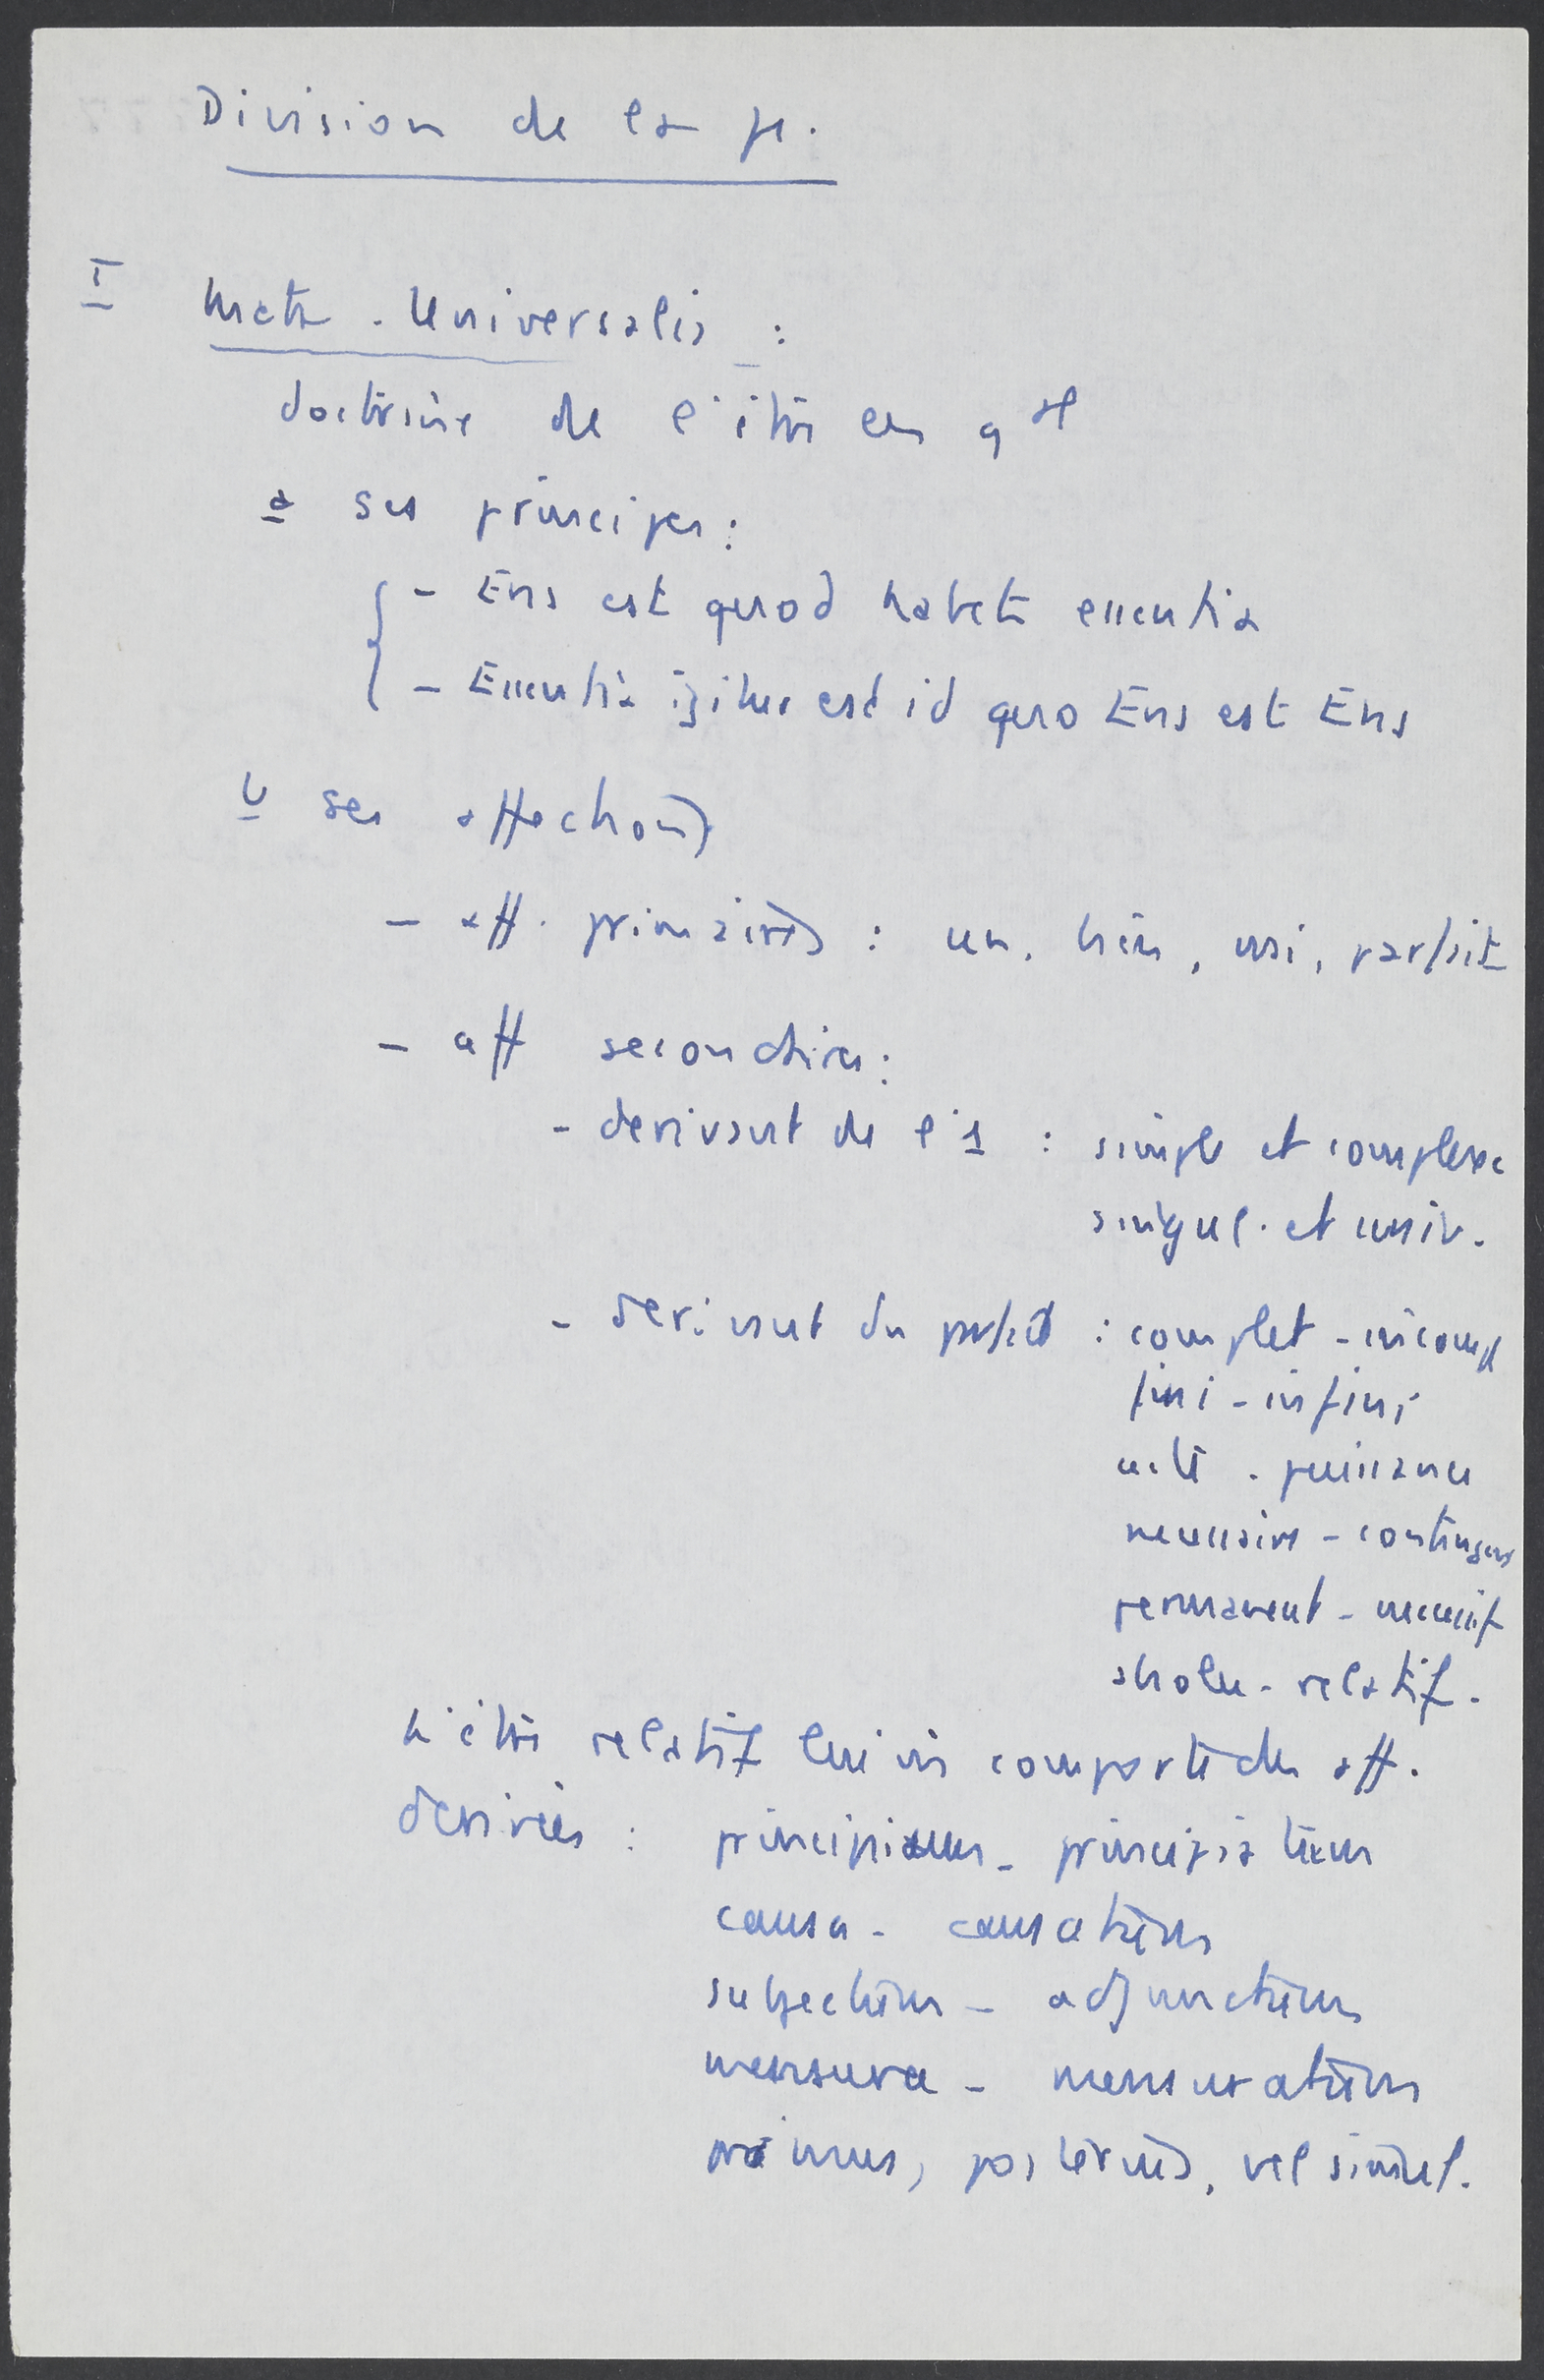 Division de la φ.
I Meta. Universalis :
doctrine de l'être en q tel
a ses principes :
- Ens est quod habet essentia
- Essentia igitur est id quo Ens est Ens
b ses affections
- aff. primaires : un, bien, vrai, parfait
- aff secondaires :
- derivant de l'1 : simple et complexe
singul. et univ.
- derivant du parfait : complet - incompl
fini - infini
acte - puissance
necessaire - contingens
permanent - successif
absolu - relatif.
L'être relatif lui m comporte des aff.
derivées : principium - principiatum
causa - causatum
subjectum - adjunctum
mensura - mensuratum
primus, posterius, vel simul.